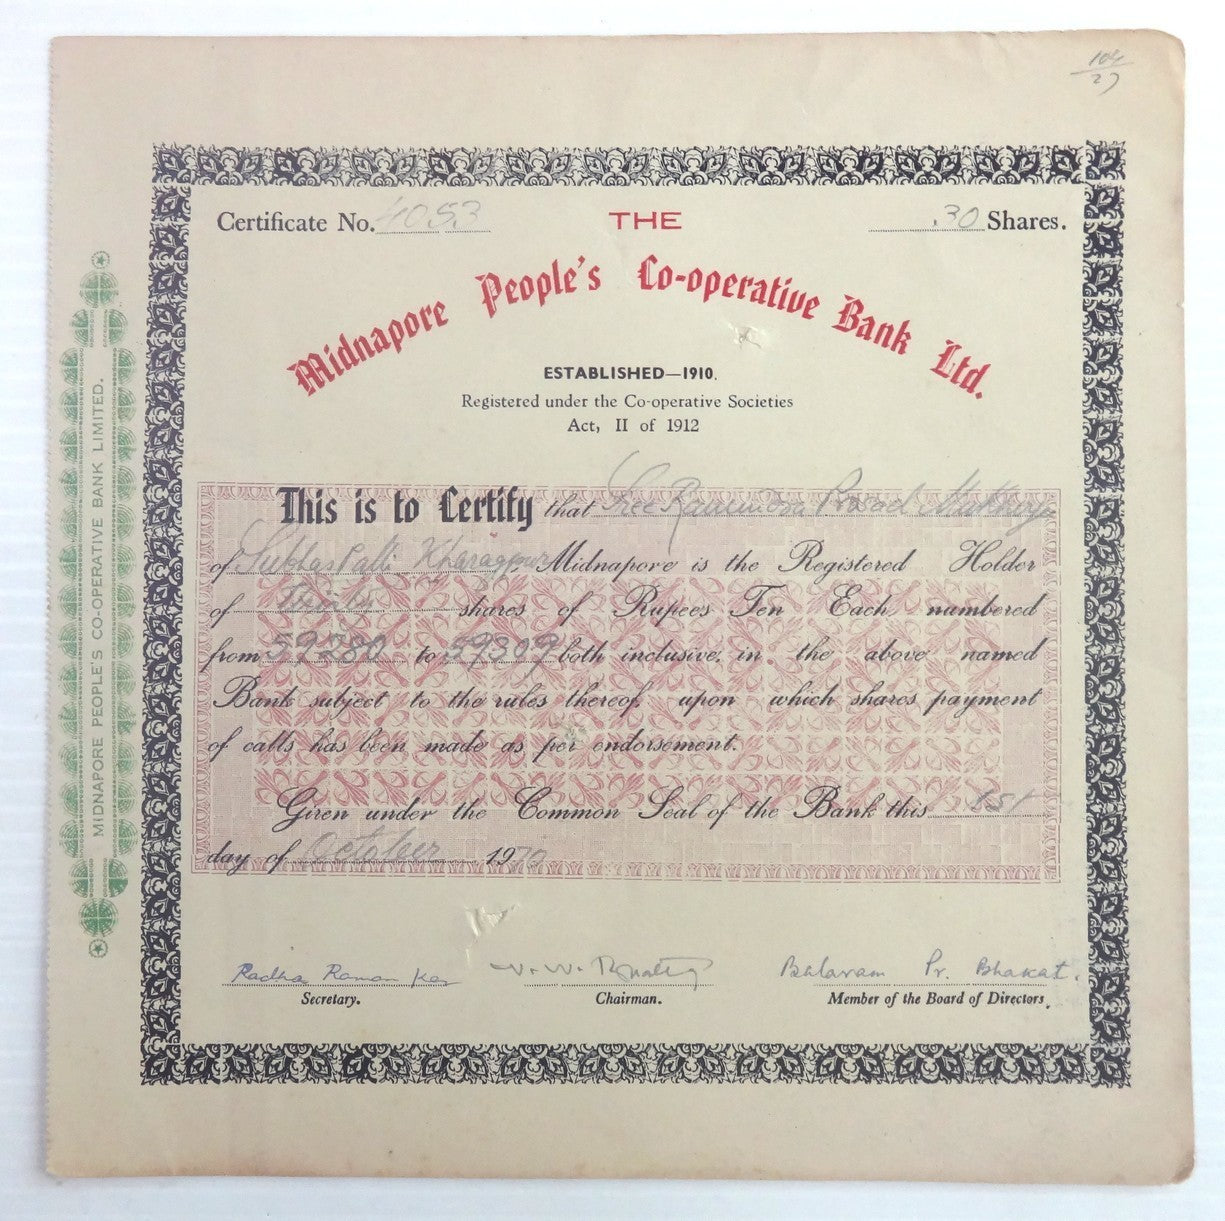 104
27
Certificate No. 4053 THE 30 Shares.
Midnapore People's Co-operative Bank Ltd.
ESTABLISHED—1910.
Registered under the Co-operative Societies
Act, II of 1912
This is to Certify that Sree Prosad
of Subhas Palli Kharagpur Midnapore is the Registered Holder
of Thirty shares of Rupees Ten Each numbered
from 59280 to 59309 both inclusive, in the above named
Bank subject to the rules thereof, upon which shares payment
of calls has been made as per endorsement.
Given under the Common Seal of the Bank this 1st
day of October 1970
Radha Raman Kar
Bhlavam Pr. Bhakat.
Secretary. Chairman. Member of the Board of Directors.
MIDNAPORE PEOPLE'S CO-OPERATIVE BANK LIMITED.